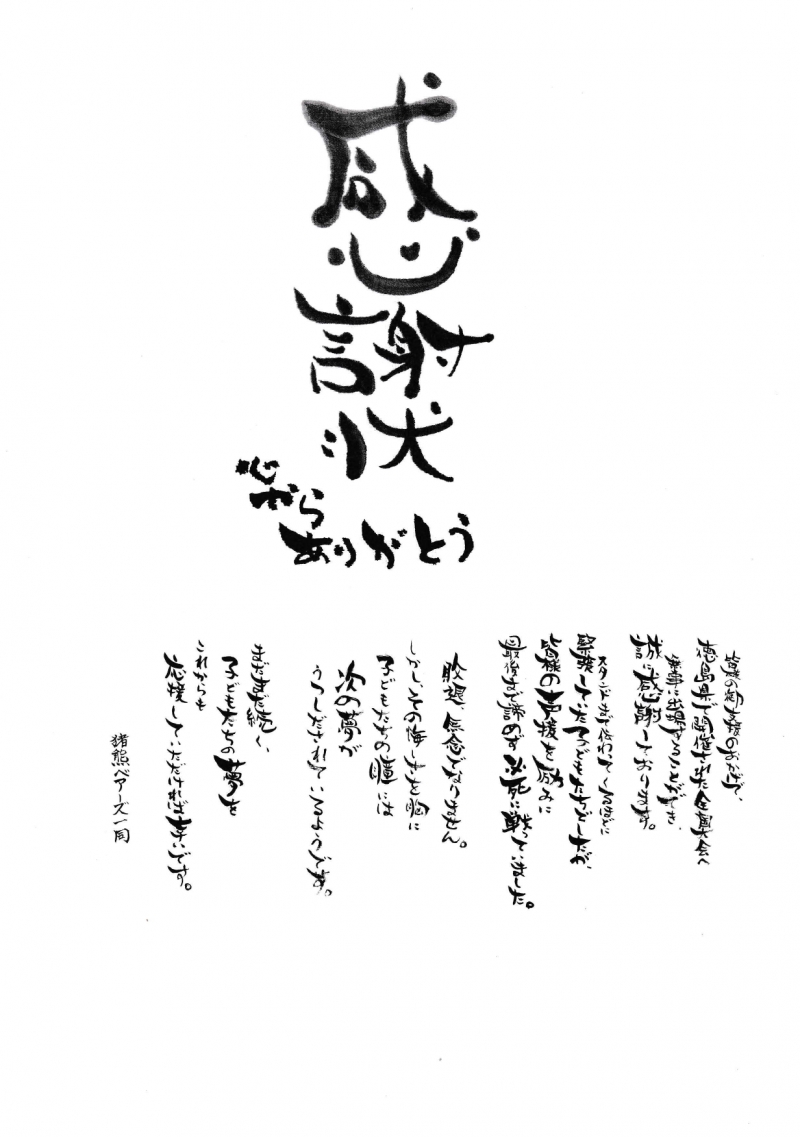 感謝状
心から
ありがとう
皆様の御支援のおかげで、
徳島県で開催された全国大会へ
無事に出場することができ、
誠に感謝しております。
スタンドまで伝わってくるほどに
緊張していた子どもたちでしたが、
皆様の声援を励みに
最後まで諦めず必死に戦っていました。
敗退、無念でなりません。
しかし、その悔しさを胸に
子どもたちの瞳には
次の夢が
うつしだされているようです。
まだまだ続く、
子どもたちの夢を
これからも
応援していただければ幸いです。
猪熊ベアーズ一同